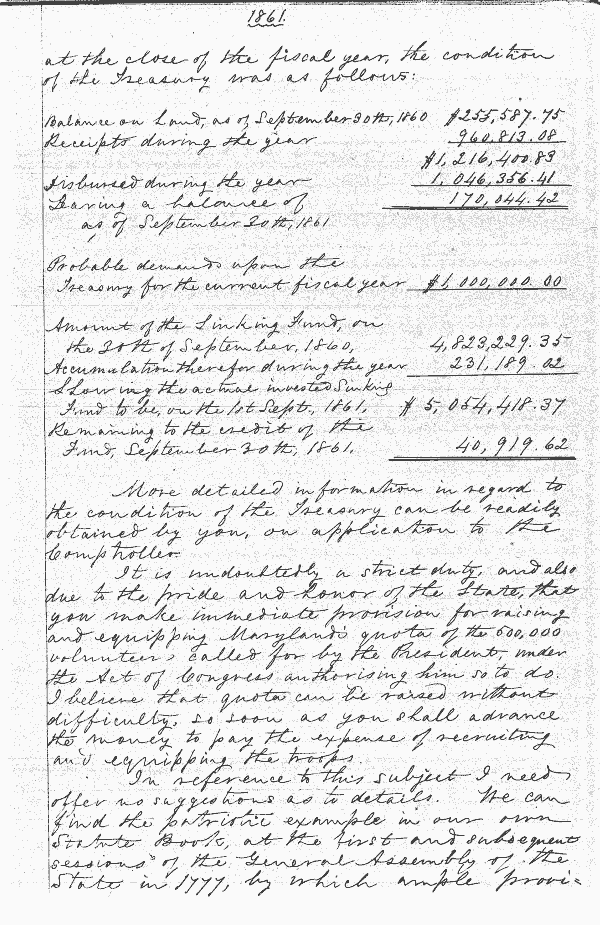 1861.
at the close of the fiscal year, the condition
of the Treasury was as follows:
Balance on hand, as of September 30th, 1860 $255,587.75
Receipts during the year 960,813.08
$1,216,400.83
Disbursed during the year 1,046,356.41
Leaving a balance of 170,044.42
as of September 30th, 1861
Probable demands upon the
Treasury for the current fiscal year $1,000,000.00
Amount of the Sinking Fund, on
the 30th of September, 1860, 4,823,229.35
Accumulation therefor during the year 231,189.02
Showing the actual invested Sinking
Fund to be, on the 1st Sept., 1861, $5,054,418.37
Remaining to the credit of the
Fund, September 30th, 1861. 40,919.62
More detailed information in regard to
the condition of the Treasury can be readily
obtained by you, on application to the
Comptroller.
It is undoubtedly a strict duty, and also
due to the pride and honor of the State, that
you make immediate provision for raising
and equipping Maryland's quota of the 500,000
volunteers called for by the President, under
the Act of Congress authorising him so to do.
I believe that quota can be raised without
difficulty, so soon as you shall advance
the money to pay the expense of recruiting
and equipping the troops.
In reference to this subject I need
offer no suggestions as to details. We can
find the patriotic example in our own
Statute Book, at the first and subsequent
sessions of the General Assembly of the
State in 1777, by which ample provi=